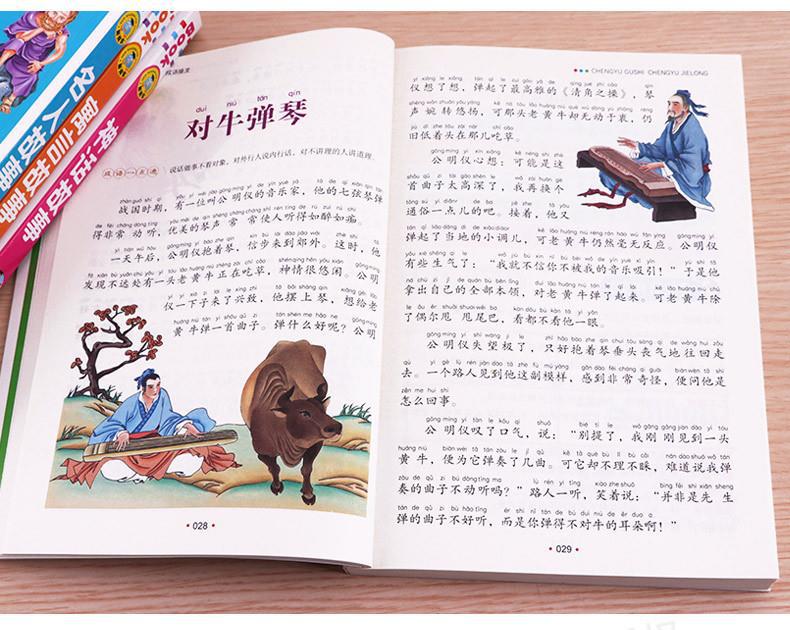 名人故事
寓言故事
神话故事
成语接龙
duì niú tán qín
对牛弹琴
成语一点通
说话做事不看对象，对外行人说内行话，对不讲理的人讲道理
战国时期，有一位叫公明仪的音乐家，他的七弦琴弹
得非常动听，优美的琴声常常使人听得如醉如痴。
一天午后，公明仪抱着琴，信步来到郊外。这时，他
发现不远处有一头老黄牛正在吃草，神情很悠闲。公明
仪一下子来了兴致，他摆上琴，想给老
黄牛弹一首曲子。弹什么好呢？公明
028
CHENGYU GUSHI CHENGYU JIELONG
仪想了想，弹起了最高雅的《清角之操》，琴
声婉转悠扬，可那头老黄牛却无动于衷，仍
旧低着头在那儿吃草。
公明仪心想：可能是这
首曲子太高深了，我再换个
通俗一点儿的吧。接着，他又
弹起了当地的小调儿，可老黄牛仍然毫无反应。公明仪
有些生气了：“我就不信你不被我的音乐吸引！”于是他
拿出自己的全部本领，对老黄牛弹了起来。可老黄牛除
了偶尔甩甩尾巴，看都不看他一眼。
公明仪失望极了，只好抱着琴垂头丧气地往回走
去。一个路人见到他这副模样，感到非常奇怪，便问他是
怎么回事。
公明仪叹了口气，说：“别提了，我刚刚见到一头
黄牛，便为它弹奏了几曲。可它却不理不睬，难道说我弹
奏的曲子不动听吗？”路人一听，笑着说：“并非是先生
弹的曲子不好听，而是你弹得不对牛的耳朵啊！”
029